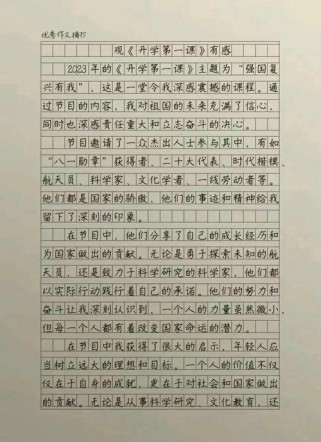 优秀作文摘抄
观《开学第一课》有感
2023年的《开学第一课》主题为“强国复
兴有我”，这是一堂令我深感震撼的课程。通
过节目的内容，我对祖国的未来充满了信心，
同时也深感责任重大和立志奋斗的决心。
节目邀请了一众杰出人士参与其中，有如
“八一勋章”获得者、二十大代表、时代楷模、
航天员、科学家、文化学者、一线劳动者等。
他们都是国家的骄傲，他们的事迹和精神给我
留下了深刻的印象。
在节目中，他们分享了自己的成长经历和
为国家做出的贡献。无论是勇于探索未知的航
天员，还是致力于科学研究的科学家，他们都
以实际行动践行着自己的承诺。他们的努力和
奋斗让我深刻认识到，一个人的力量虽然微小，
但每一个人都有着改变国家命运的潜力。
在节目中我获得了很大的启示，年轻人应
当树立远大的理想和目标。一个人的价值不仅
仅在于自身的成就，更在于对社会和国家做出
的贡献。无论是从事科学研究、文化教育，还